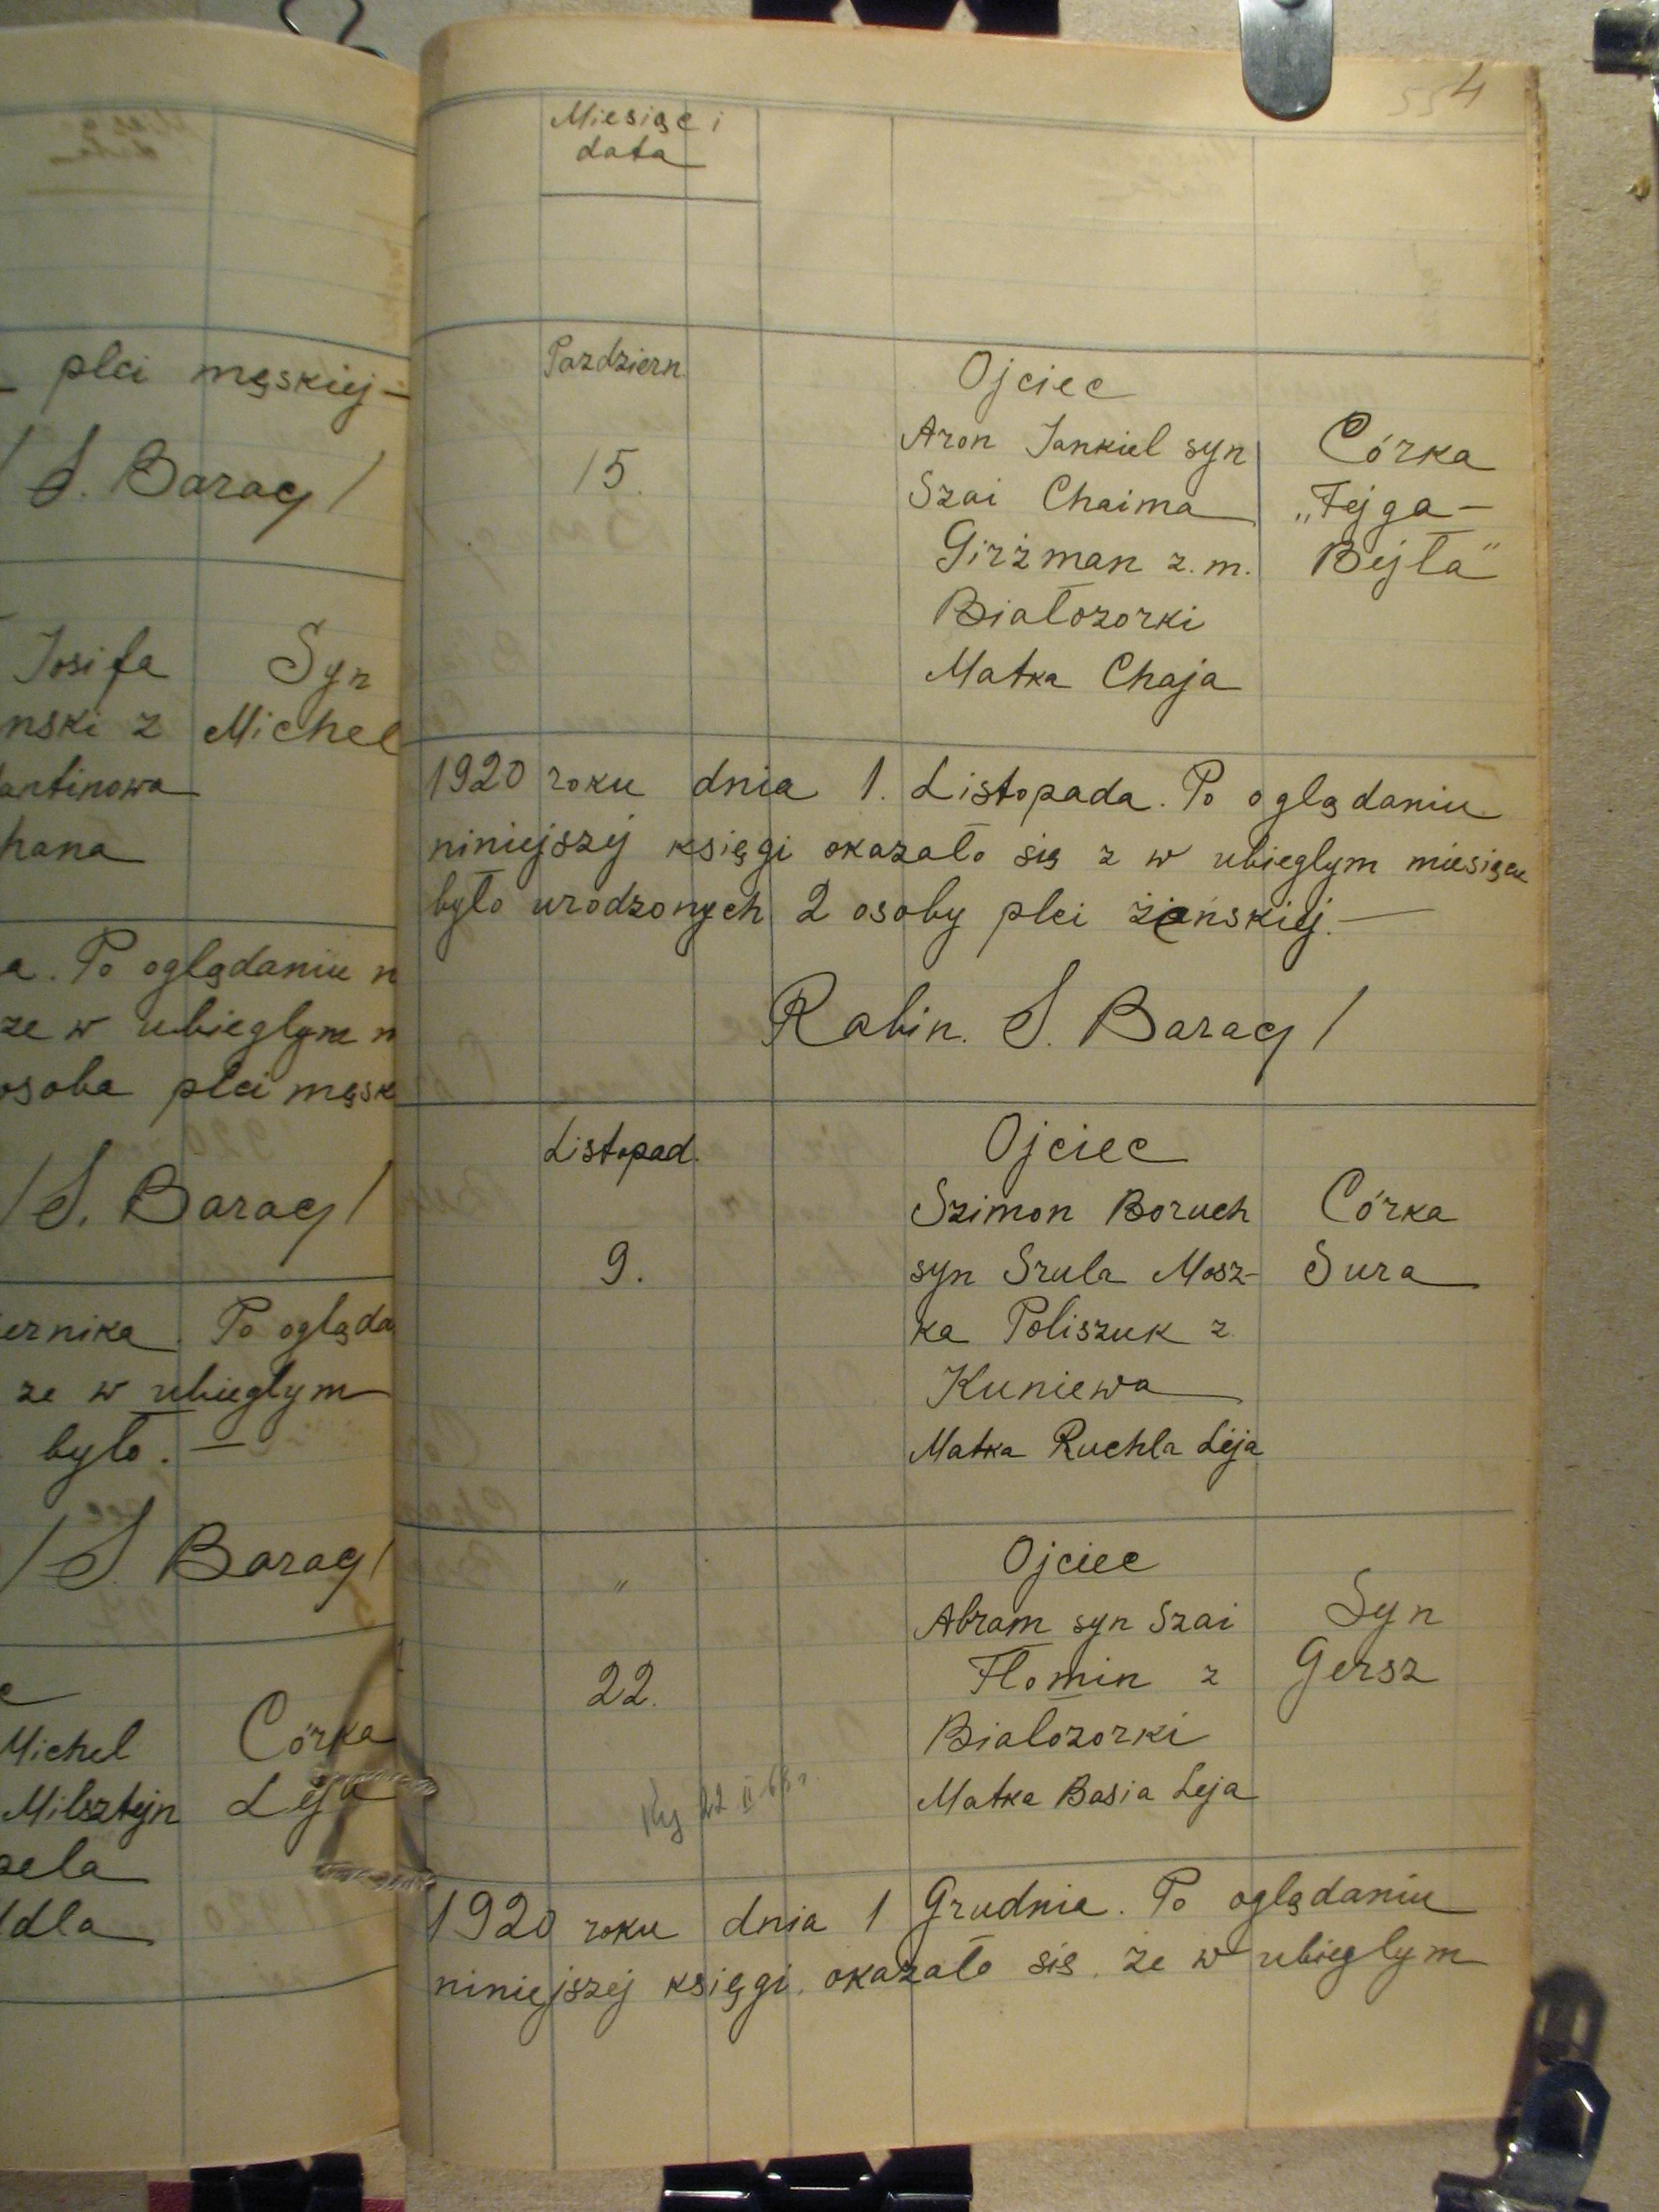 plci męskiej —
/ S. Barag /
Josifa
Syn
nski z
Michel
antinowa
hana
a. Po oglądaniu n
ze w ubieglym m
osoba plci męsk
/ S. Barag /
ernika. Po ogląda
ze w ubiegłym
było. —
/ S. Barag /
Michel
Córka
Milsztejn
Leja
zela
dla
4
Miesiąc i
data
Pazdziern.
15.
Ojciec
Aron Jankiel syn
Szai Chaima
Girżman z. m.
Białozorki
Matka Chaja
Córka
„Fejga —
Bejła"
1920 roku dnia 1. Listopada. Po oglądaniu
niniejszej księgi okazało się z w ubieglym miesiącu
było urodzonych 2 osoby plci żenskiej. —
Rabin. S. Barag /
Listopad.
9.
Ojciec
Szimon Boruch
syn Srula Mosz-
ka Poliszuk z
Kuniewa
Matka Ruchla Leja
Córka
Sura
"
22.
Ojciec
Abram syn Szai
Flomin z
Białozorki
Matka Basia Leja
Syn
Gersz
1920 roku dnia 1 Grudnia. Po oglądaniu
niniejszej księgi. okazało się. ze w ubieglym